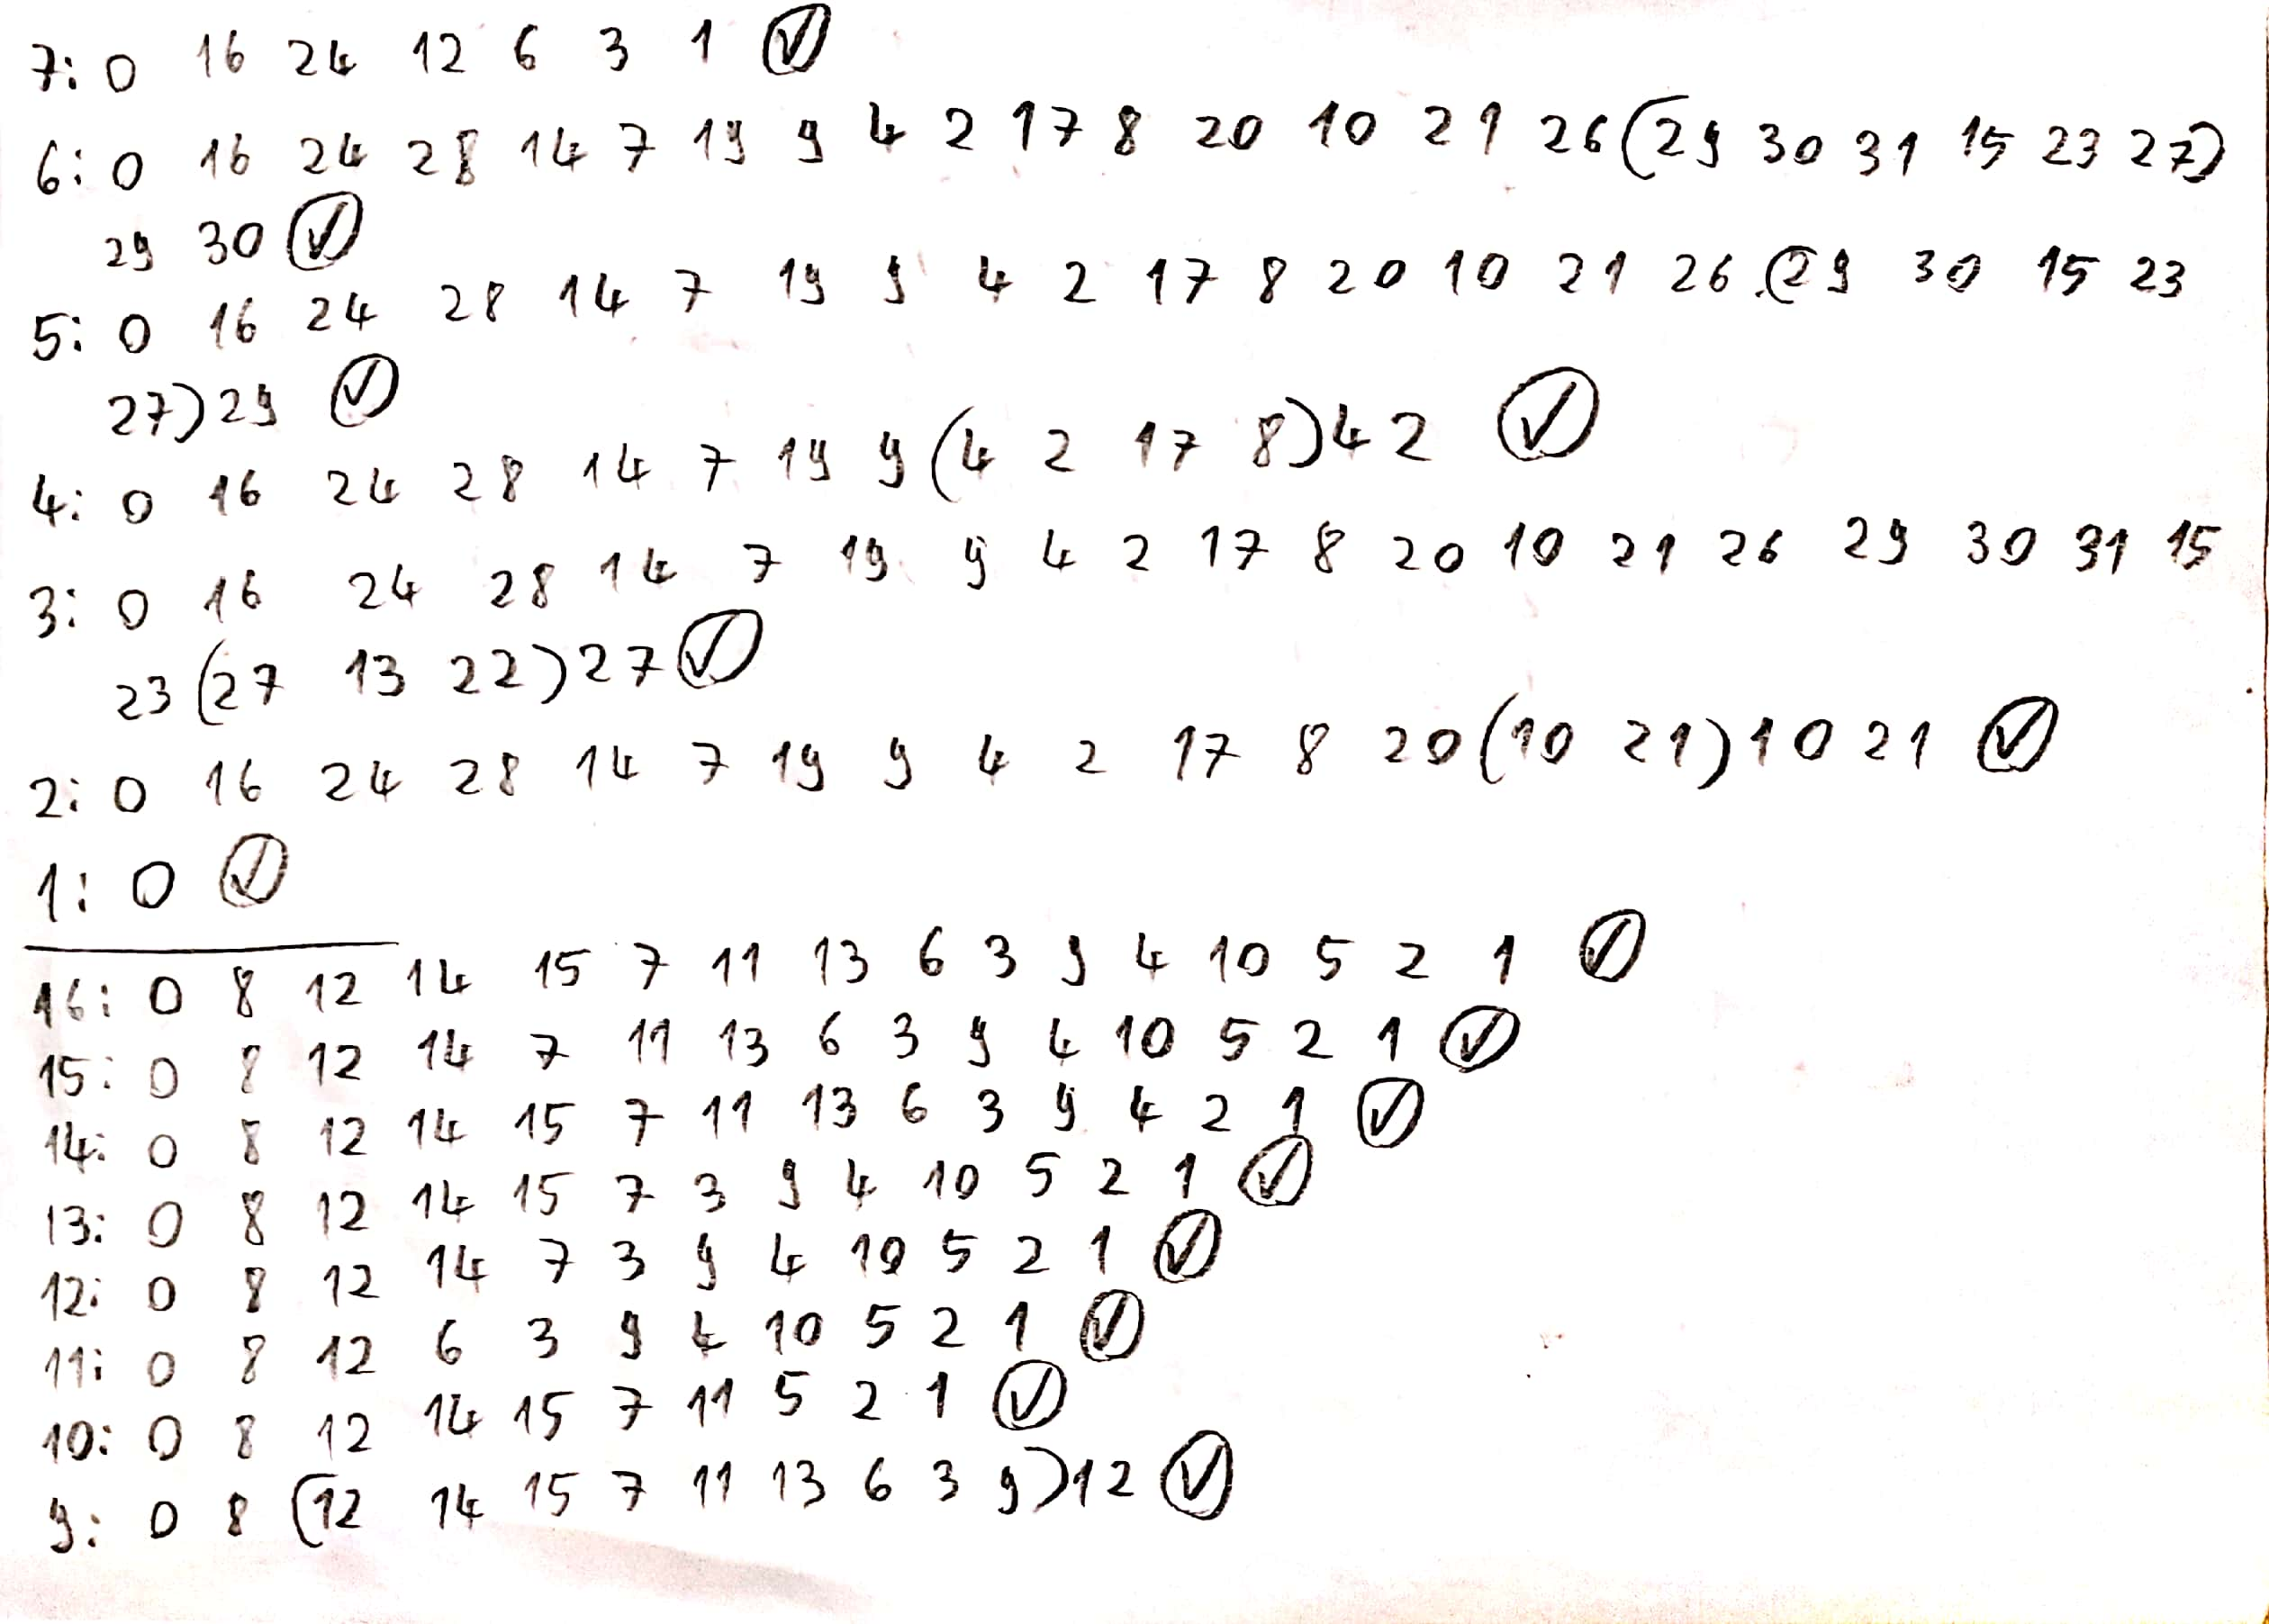 7: 0 16 24 12 6 3 1 ✓
6: 0 16 24 28 14 7 19 9 4 2 17 8 20 10 21 26 (29 30 31 15 23 27)
29 30 ✓
5: 0 16 24 28 14 7 19 9 4 2 17 8 20 10 21 26 (29 30 15 23
27) 29 ✓
4: 0 16 24 28 14 7 19 9 (4 2 17 8) 4 2 ✓
3: 0 16 24 28 14 7 19 9 4 2 17 8 20 10 21 26 29 30 31 15
23 (27 13 22) 27 ✓
2: 0 16 24 28 14 7 19 9 4 2 17 8 20 (10 21) 10 21 ✓
1: 0 ✓
16: 0 8 12 14 15 7 11 13 6 3 9 4 10 5 2 1 ✓
15: 0 8 12 14 7 11 13 6 3 9 4 10 5 2 1 ✓
14: 0 8 12 14 15 7 11 13 6 3 9 4 2 1 ✓
13: 0 8 12 14 15 7 3 9 4 10 5 2 1 ✓
12: 0 8 12 14 7 3 9 4 10 5 2 1 ✓
11: 0 8 12 6 3 9 4 10 5 2 1 ✓
10: 0 8 12 14 15 7 11 5 2 1 ✓
9: 0 8 (12 14 15 7 11 13 6 3 9) 12 ✓